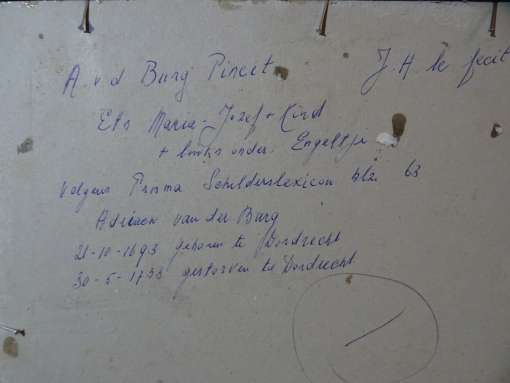 A. v d Burg Pinxit J. H. le fecit
Ets Maria - Jozef + Kind
+ links onder Engeltje
volgens Prisma Schilderslexicon blz. 63
Adriaen van der Burg
21-10-1693 geboren te Dordrecht
30-5-1733 gestorven te Dordrecht